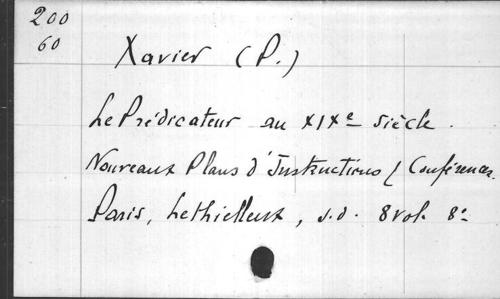 200
60
Xavier (P.)
Le Prédicateur au XIXe siècle.
Nouveaux Plans d'Instructions / Conférences.
Paris, Lethielleux, s.d. 8 vol. 8°